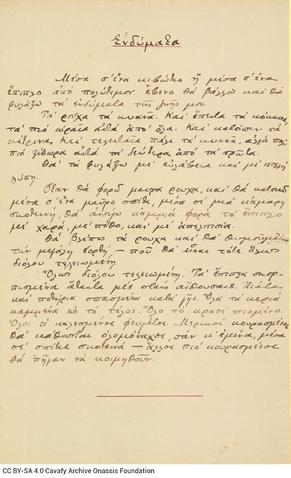 Ενδύματα
Μέσα σ' ένα κιβώτιο ή μέσα σ' ένα
έπιπλο από πολύτιμον έβενο θα βάλλω και θα
φυλάξω τα ενδύματα της ζωής μου.
Τα ρούχα τα κυανά. Και έπειτα τα κόκκινα,
τα πιο ωραία αυτά απ' όλα. Και κατόπιν τα
κίτρινα. Και τελευταία πάλι τα κυανά, αλλά πολύ
πιο ξέθωρα αυτά τα δεύτερα από τα πρώτα.
Θα τα φυλάξω με ευλάβεια και με πολλή
λύπη.
Όταν θα φορώ μαύρα ρούχα, και θα κατοικώ
μέσα σ' ένα μαύρο σπίτι, μέσα σε μια κάμαρη
σκοτεινή, θα ανοίγω καμμιά φορά το έπιπλο
με χαρά, με πόθο, και με απελπισία.
Θα βλέπω τα ρούχα και θα θυμούμαι
την μεγάλη εορτή — που θα είναι τότε όλως
διόλου τελειωμένη.
Όλως διόλου τελειωμένη. Τα έπιπλα σκορ-
πισμένα άτακτα μες στες αίθουσες. Πιάτα
και ποτήρια σπασμένα κατά γης. Όλα τα κεριά
καμμένα ως το τέλος. Όλο το κρασί πιομένο.
Όλοι οι καλεσμένοι φευγάτοι. Μερικοί κουρασμένοι
θα κάθωνται ολομόναχοι, σαν κ' εμένα, μέσα
σε σπίτια σκοτεινά — άλλοι πιο κουρασμένοι
θα πήγαν να κοιμηθούν.
CC BY-SA 4.0 Cavafy Archive Onassis Foundation